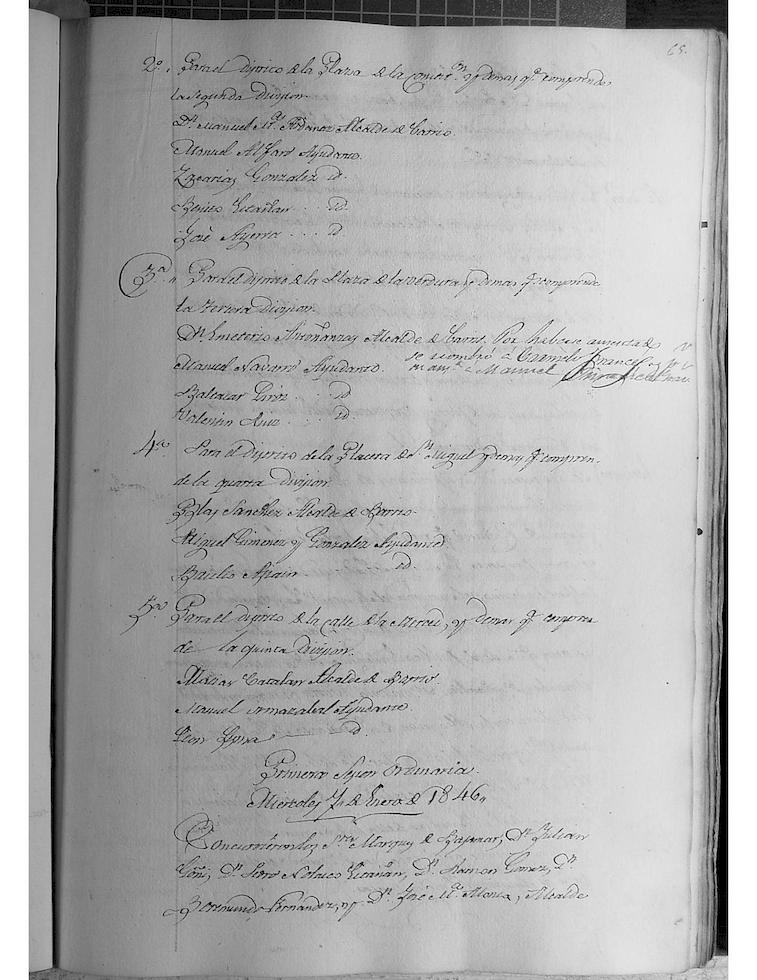 65.
2º. Para el distrito de la Plaza de la y demas qe. comprende
la segunda division.
Dn. Manuel Ma. Alcalde de barrio.
Manuel Alfaro Ayudante.
Zacarias Gonzalez id.
Benito id.
José Ayerra id.
3ª. Para el distrito de la Plaza de la verdura, y demas qe. comprende
la tercera division.
Dn. Emeterio Alcalde de barrio. Por haberse ausentado
se nombró á Carmelo Frances y
Manuel Navarro Ayudante. á Manuel
Baltazar id
Valentin Ruiz id.
4ª. Para el distrito de la Placeta de Sn. Miguel y demas qe. compren-
de la quarta division.
Blas Sanchez Alcalde de Barrio.
Miguel Gimenez y Gonzalez Ayudante
Basilio id.
5ª. Para el distrito de la calle de la Merced, y demas qe. compren
de la quinta division.
Matias Catalan Alcalde de Barrio.
Manuel Armazabal Ayudante.
Leon id.
Primera Sesion Ordinaria.
Miercoles 7 de Enero de 1846.
Concurrieron los Sres. Marques de Bajamar, Dn. Julian
Goñi, Dn. Pedro Nolasco Dn. Ramon Gomez, Dn.
Beremundo Fernandez, y Dn. José Ma. Alonso, Alcalde